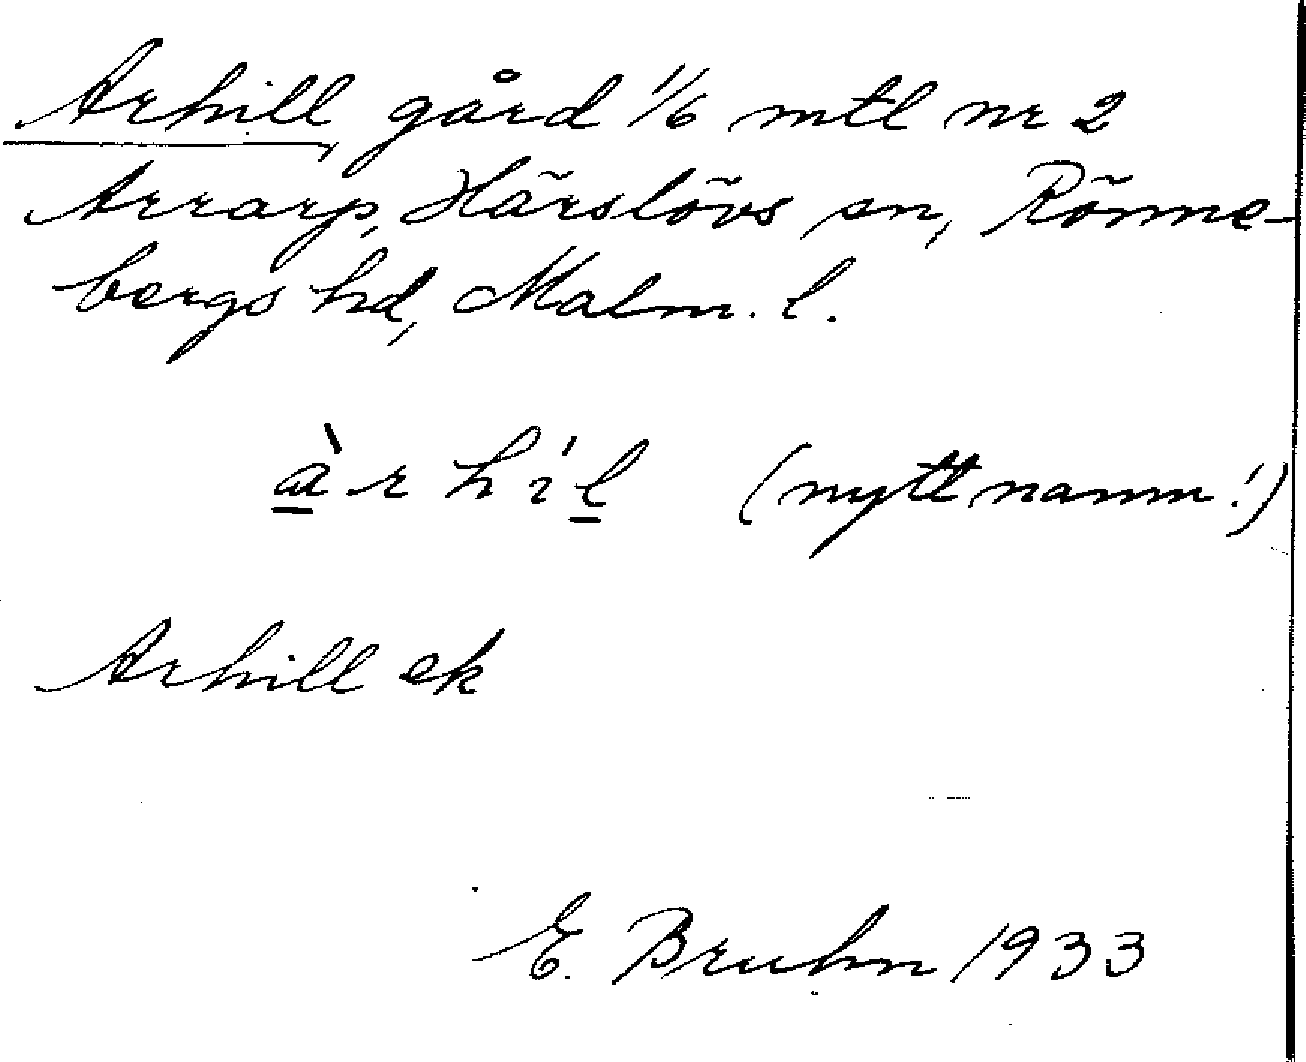 Arhill, gård 1/6 mtl nr 2
Arrarp, Härslövs sn, Rönne-
bergs hd, Malm. l.
àr híl (nytt namn!)
Arhill ek
E. Bruhn 1933